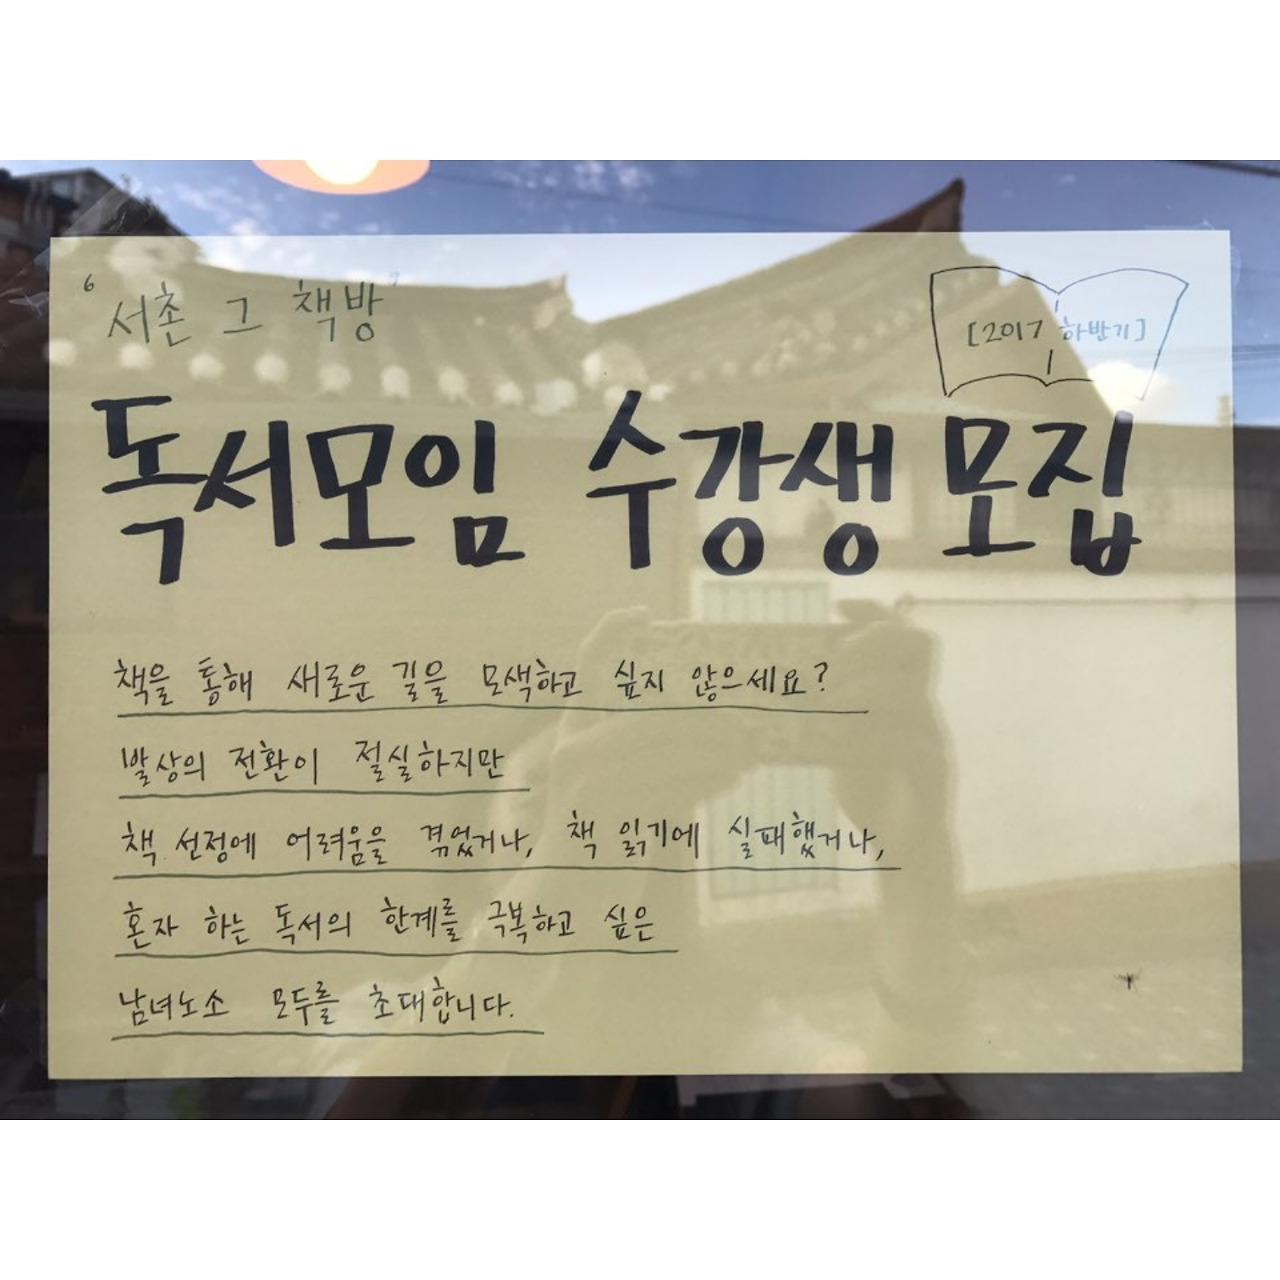 '서촌 그 책방'
[2017 하반기]
독서모임 수강생 모집
책을 통해 새로운 길을 모색하고 싶지 않으세요?
발상의 전환이 절실하지만
책 선정에 어려움을 겪었거나, 책 읽기에 실패했거나,
혼자 하는 독서의 한계를 극복하고 싶은
남녀노소 모두를 초대합니다.